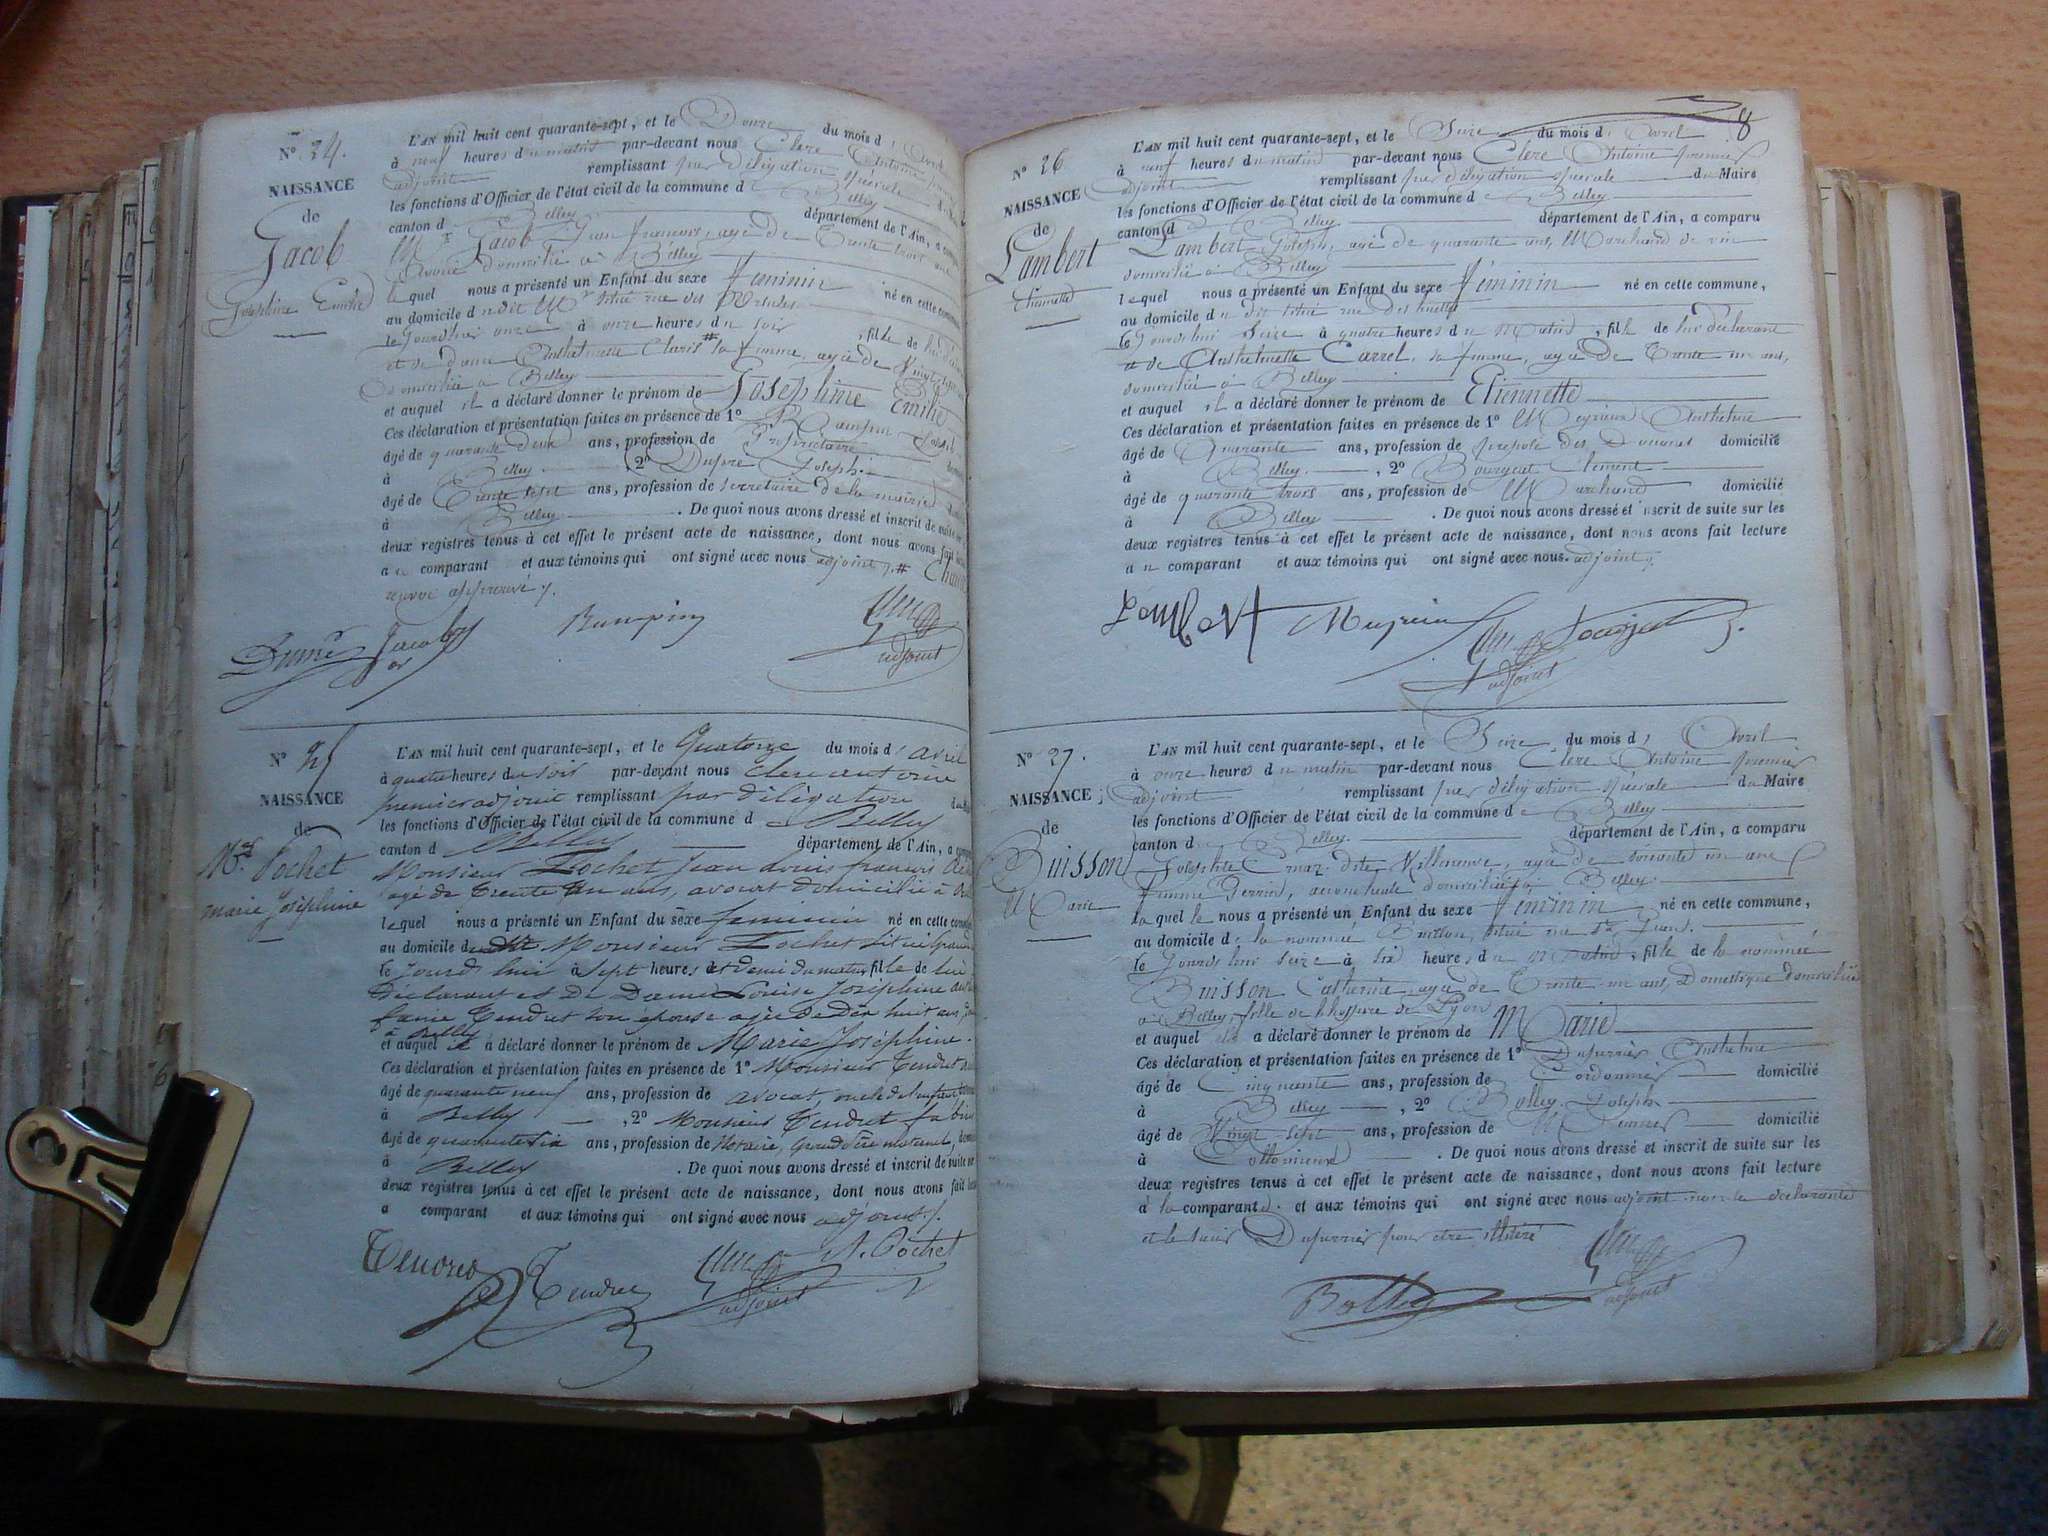 N° 24.
NAISSANCE
de
Jacob
Joséphine Emilie
L'AN mil huit cent quarante-sept, et le Douze du mois d' Avril
à neuf heures du matin par-devant nous Clerc Antoine premier
adjoint remplissant par délégation spéciale
les fonctions d'Officier de l'état civil de la commune de Belley
canton d Belley département de l'Ain, a comparu
Mr Jacob Jean François, agé de Trente trois ans
Avoué domicilié à Belley
lequel nous a présenté un Enfant du sexe féminin né en cette commune,
au domicile du dit Mr situé rue des
le Jourd'hui onze à onze heures du soir, fille de lui
et de dame Anthelmette Claris # sa femme, agée de Vingt
domiciliée à Belley
et auquel il a déclaré donner le prénom de Joséphine Emilie
Ces déclaration et présentation faites en présence de 1°
âgé de quarante deux ans, profession de Propriétaire
à Belley, 2° Joseph.
âgé de Trente sept ans, profession de secrétaire de la mairie
à Belley. De quoi nous avons dressé et inscrit de suite
deux registres tenus à cet effet le présent acte de naissance, dont nous avons fait
au comparant et aux témoins qui ont signé avec nous adjoint. #
renvoi approuvé.
Jacob
Rampin
Clerc
adjoint
N° 25
NAISSANCE
de
Pochet
Marie Joséphine
L'AN mil huit cent quarante-sept, et le Quatorze du mois d' avril
à quatre heures du soir par-devant nous Clerc antoine
premier adjoint remplissant par délégation
les fonctions d'Officier de l'état civil de la commune d Belley
canton d Belley département de l'Ain, a
Monsieur Pochet Jean Louis françois
agé de Trente un ans, avocat domicilié à
lequel nous a présenté un Enfant du sexe feminin né en cette
au domicile de Monsieur Pochet situé
le jourd'hui à sept heures et demi du matin, fille de lui
déclarant et de Dame Louise Joséphine
Tendret son épouse agée de dix huit ans,
à Belley
et auquel il a déclaré donner le prénom de Marie Joséphine.
Ces déclaration et présentation faites en présence de 1° Monsieur Tendret
âgé de quarante neuf ans, profession de avocat, oncle de
à Belley, 2° Monsieur Tendret
âgé de quarante six ans, profession de Notaire, Grand père maternel,
à Belley. De quoi nous avons dressé et inscrit de suite
deux registres tenus à cet effet le présent acte de naissance, dont nous avons fait
a comparant et aux témoins qui ont signé avec nous adjoint.
Tendret
Tendret
Clerc
adjoint
Pochet
8
N° 26
NAISSANCE
de
Lambert
Etiennette
L'AN mil huit cent quarante-sept, et le Seize du mois d' Avril
à neuf heures du matin par-devant nous Clerc Antoine premier
adjoint remplissant par délégation spéciale du Maire
les fonctions d'Officier de l'état civil de la commune de Belley
canton d Belley département de l'Ain, a comparu
Lambert Joseph, agé de quarante ans, Marchand de vin
domicilié à Belley
lequel nous a présenté un Enfant du sexe féminin né en cette commune,
au domicile du dit situé rue des
le Jourd'hui Seize à quatre heures du Matin, fille de lui déclarant
et de Anthelmette Carrel, sa femme, agée de Trente un ans,
domiciliée à Belley
et auquel il a déclaré donner le prénom de Etiennette
Ces déclaration et présentation faites en présence de 1° Meyrieux Anthelme
âgé de Quarante ans, profession de préposé des Douanes domicilié
à Belley, 2° Clément
âgé de quarante trois ans, profession de Marchand domicilié
à Belley. De quoi nous avons dressé et inscrit de suite sur les
deux registres tenus à cet effet le présent acte de naissance, dont nous avons fait lecture
au comparant et aux témoins qui ont signé avec nous. adjoint.
Lambert
Clerc
adjoint
N° 27.
NAISSANCE
de
Buisson
Marie
L'AN mil huit cent quarante-sept, et le Seize du mois d' Avril
à onze heures du matin par-devant nous Clerc Antoine premier
adjoint remplissant par délégation spéciale du Maire
les fonctions d'Officier de l'état civil de la commune de Belley
canton d Belley. département de l'Ain, a comparu
Josephte dite Villeneuve, agée de soixante un ans
femme Perrin, accoucheuse domiciliée à Belley.
laquelle nous a présenté un Enfant du sexe féminin, né en cette commune,
au domicile de la nommée Buisson, situé rue St Jean.
le Jourd'hui seize à six heures du matin, fille de la nommée
Buisson Catherine, agée de Trente un ans, Domestique domiciliée
à Belley fille de l'hospice de Lyon
et auquel elle a déclaré donner le prénom de Marie
Ces déclaration et présentation faites en présence de 1° Dupurrier Anthelme
âgé de Cinquante ans, profession de Cordonnier domicilié
à Belley, 2° Bolley Joseph
âgé de Vingt sept ans, profession de domicilié
à. De quoi nous avons dressé et inscrit de suite sur les
deux registres tenus à cet effet le présent acte de naissance, dont nous avons fait lecture
à la comparante. et aux témoins qui ont signé avec nous adjoint non la déclarante
et le sieur Dupurrier pour être illitéré
Clerc
adjoint
Bolley